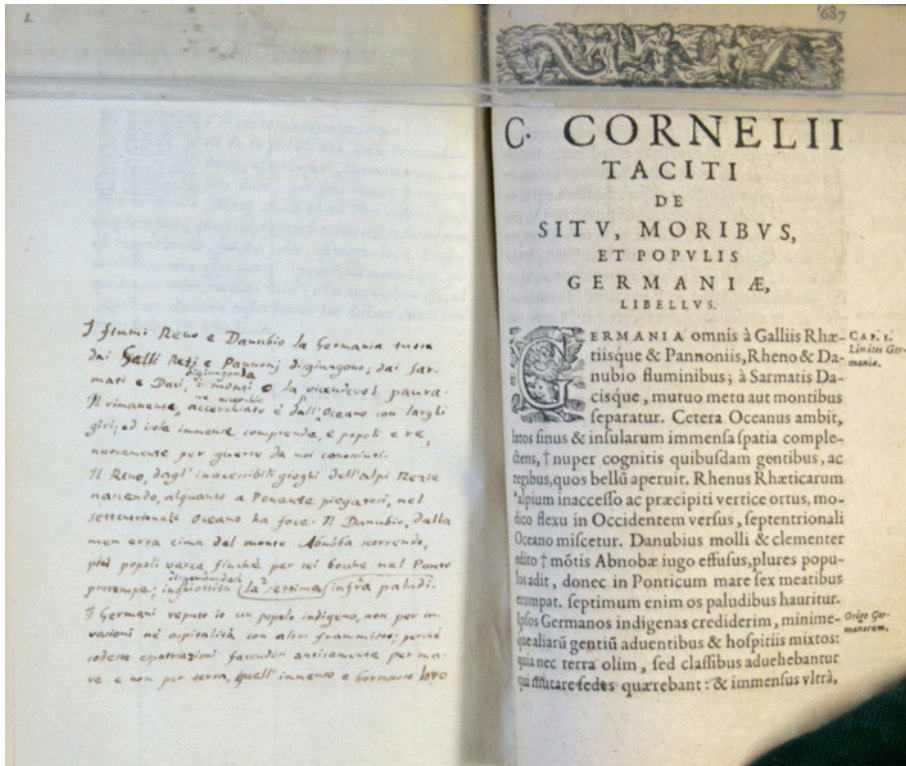 1.
I fiumi Reno e Danubio la Germania tutta
dai Galli Reti e Pannonj digiungono; dai Sar-
digiungonla
mati e Daci, i monti o la vicendevol paura.
Il rimanente, accerchiato è dall'Oceano con larghi
giri, ed isole immense comprende, e popoli e re,
nuovamente per guerre da noi conosciuti.
Il Reno, dagl' inaccessibili gioghi dell'alpi Rezie
nascendo, alquanto a Ponente piegatosi, nel
settentrionale Oceano ha foce. Il Danubio, dalla
men erta cima del monte Abnoba scorrendo,
più popoli varca finchè per sei bocche nel Ponto
prorompe; la settima infra paludi.
I Germani reputo io un popolo indigeno, non per in-
vasioni nè ospitalità con altri frammisto; perchè
codeste espatriazioni anticamente per ma-
re e non per terra, quell' immenso e loro
687
C. CORNELII
TACITI
DE
SITV, MORIBVS,
ET POPVLIS
GERMANIÆ,
LIBELLVS.
GERMANIA omnis à Galliis Rhæ-
tiisque & Pannoniis, Rheno & Da-
nubio fluminibus; à Sarmatis Da-
cisque, mutuo metu aut montibus
ſeparatur. Cetera Oceanus ambit,
latos ſinus & inſularum immenſa ſpatia comple-
ctens, † nuper cognitis quibuſdam gentibus, ac
regibus, quos bellū aperuit. Rhenus Rhæticarum
alpium inacceſſo ac præcipiti vertice ortus, mo-
dico flexu in Occidentem verſus, ſeptentrionali
Oceano miſcetur. Danubius molli & clementer
edito † mōtis Abnobæ iugo effuſus, plures popu-
los adit, donec in Ponticum mare ſex meatibus
erumpat. ſeptimum enim os paludibus hauritur.
Ipſos Germanos indigenas crediderim, minime-
que aliarū gentiū aduentibus & hoſpitiis mixtos:
quia nec terra olim, ſed claſſibus aduehebantur
qui mutare ſedes quærebant: & immenſus vltrà,
CAP. I.
Limites Ger-
maniæ.
Origo Ger-
manorum.